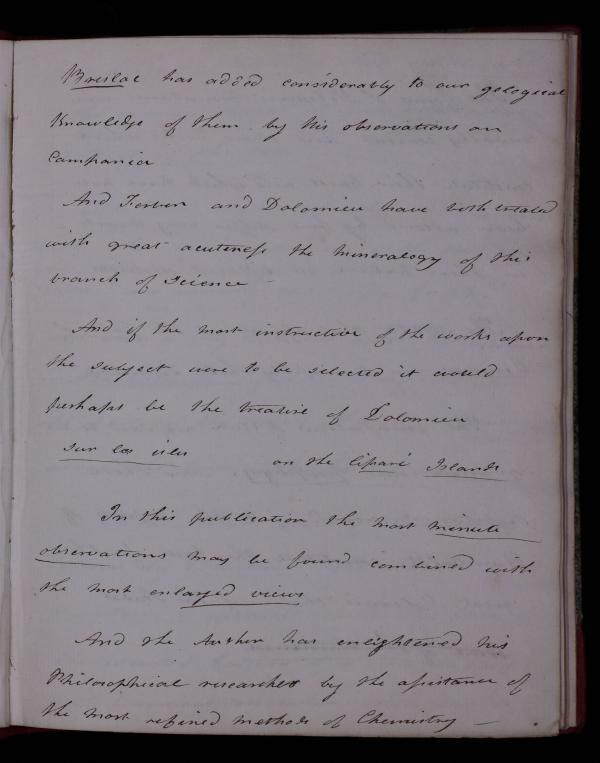 Breislac has added considerably to our gelogical
Knowledge of them by his observations on
Campania
And Ferber and Dolomieu have both treated
with great acuteness the mineralogy of this
branch of Science -
And if the most instructive of the works upon
the subject were to be selected it would
perhaps be the treatise of Dolomieu
sur les isles on the Lipari Islands
In this publication the most minute
observations may be found combined with
the most enlarged views
And the Author has enlightened his
Philosophical researches by the assistance of
the most refined methods of Chemistry -